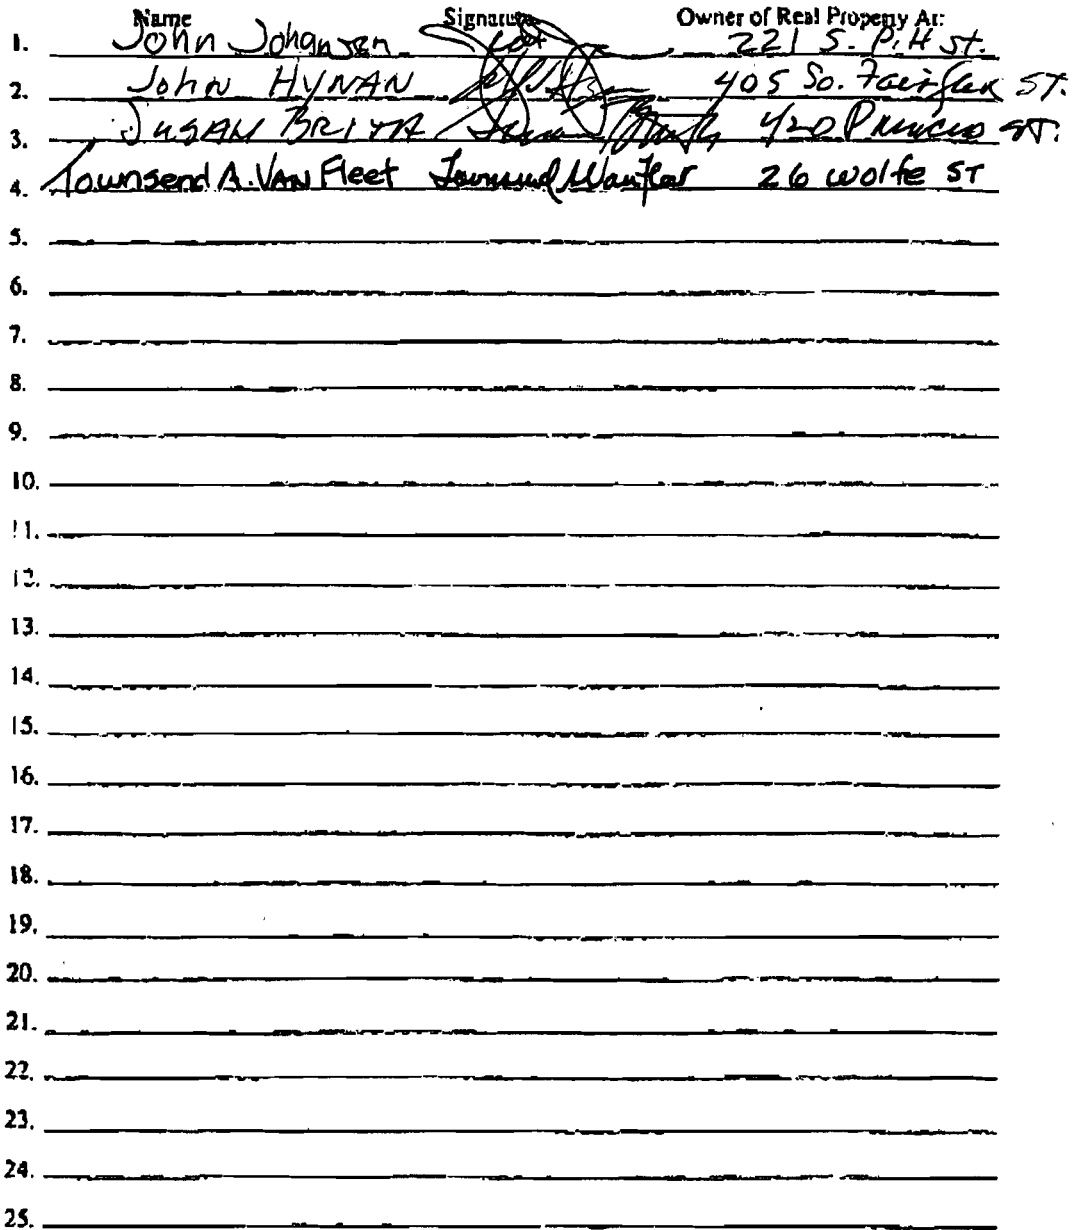 Name Signature Owner of Real Property At:
1. John Johansen 221 S. Pitt St.
2. John HYNAN 405 So. Fairfax ST.
3. SUSAN 420 ST.
4. Townsend A. VAN Fleet Townsend A Van Fleet 26 wolfe ST
5.
6.
7.
8.
9.
10.
11.
12.
13.
14.
15.
16.
17.
18.
19.
20.
21.
22.
23.
24.
25.